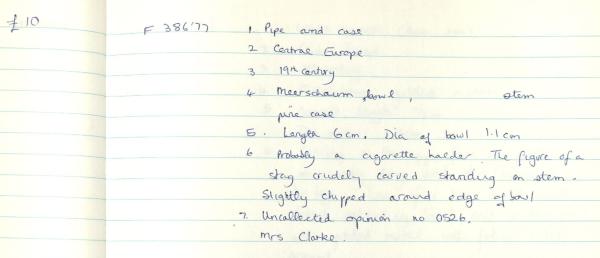 £10 F 386'77 1 Pipe and case
2 Central Europe
3 19th century
4. Meerschaum bowl, stem
pine case
5. Length 6cm. Dia of bowl 1.1cm
6 Probably a cigarette holder. The figure of a
stag crudely carved standing on stem.
Slightly chipped around edge of bowl
7. Uncollected opinion no 0526.
Mrs Clarke.